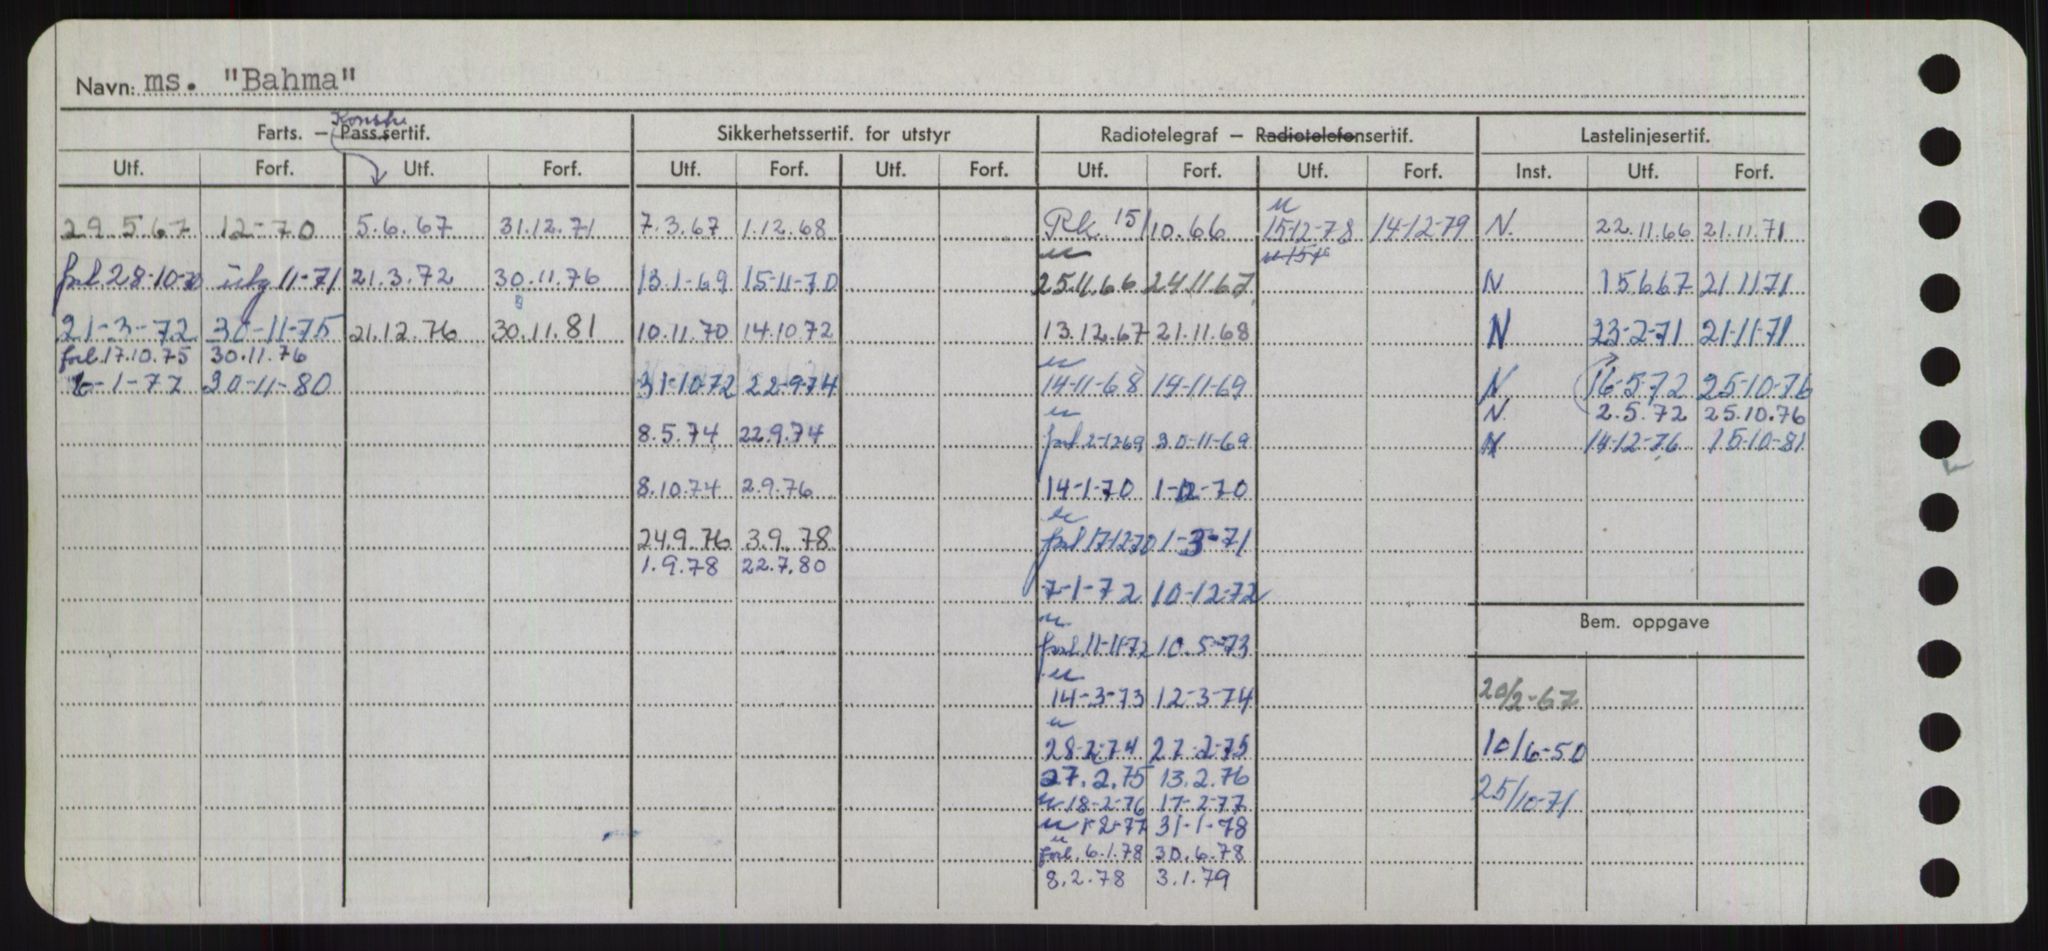 Navn: ms. "Bahma"
Konstr.
Farts. – Pass.sertif. Sikkerhetssertif. for utstyr Radiotelegraf – Radiotelefonsertif. Lastelinjesertif.
Utf. Forf. Utf. Forf. Utf. Forf. Utf. Forf. Utf. Forf. Utf. Forf. Inst. Utf. Forf.
29.5.67 12-70 5.6.67 31.12.71 7.3.67 1.12.68 Rk 15/10.66 15-12-78 14-12-79 N. 22.11.66 21.11.71
forl. 28-10-70 utg 11-71 21.3.72 30.11.76 13.1-69 15-11-70 25.11.66 24.11.67 N 15.6.67 21.11.71
21-3-72 30-11-75 21.12.76 30.11.81 10.11.70 14.10.72 13.12.67 21.11.68 N 23-2-71 21-11-71
forl. 17.10.75 30.11.76
6-1-77 30-11-80 31-10-72 22-9-74 14-11-68 14-11-69 N 16-5-72 25-10-76
N. 2.5.72 25.10.76
8.5.74 22.9.74 forl 2-12-69 30-11-69 N 14-12-76 15-10-81
8.10.74 2.9.76 14-1-70 1-12-70
24.9.76 3.9.78 forl 17-12-70 1-3-71
1.9.78 22.7.80
7-1-72 10-12-72
Bem. oppgave
forl 11-11-72 10.5-73
14-3-73 12-3-74 20/2-67
28-2-74 27-2-75 10/6-50
27.2.75 13.2.76
18-2-76 17-2-77 25/10-71
1-2-77 31-1-78
forl. 6.1.78 30.6.78
8.2.78 3.1.79